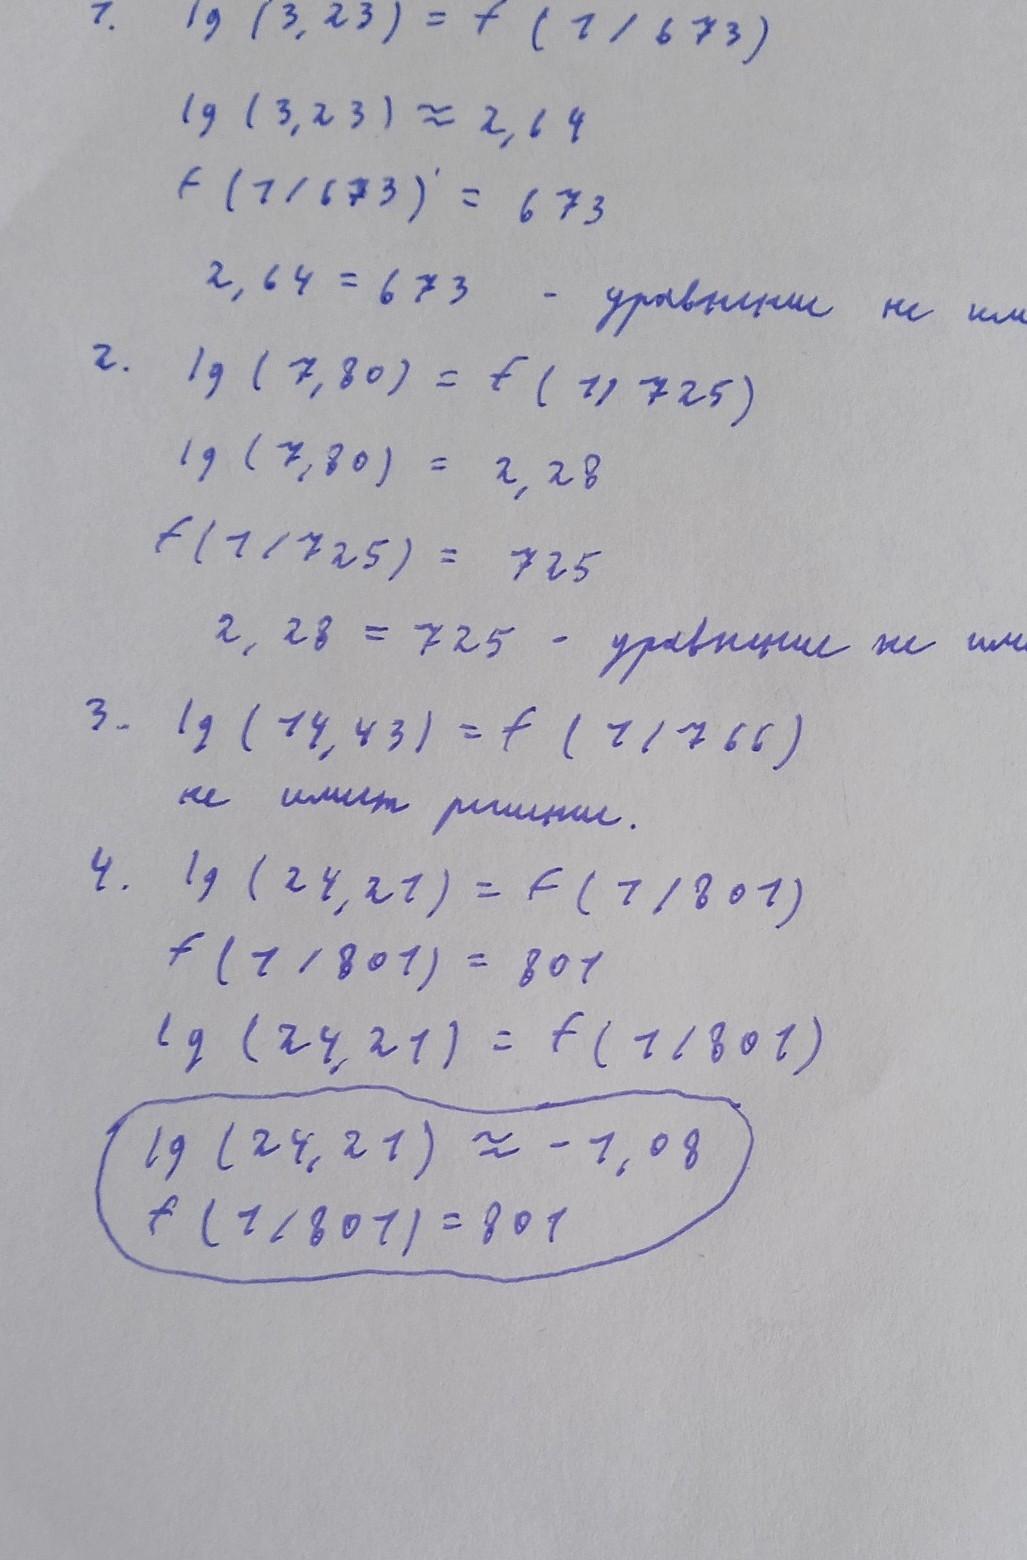 1. lg (3,23) = f (1/673)
lg (3,23) ≈ 2,64
f (1/673) = 673
2,64 = 673 - уравнение не
2. lg (7,80) = f (1/725)
lg (7,80) = 2,28
f (1/725) = 725
2,28 = 725 - уравнение не
3. lg (14,43) = f (1/766)
не имеет решение.
4. lg (24,21) = f (1/801)
f (1/801) = 801
lg (24,21) = f (1/801)
lg (24,21) ≈ -1,08
f (1/801) = 801